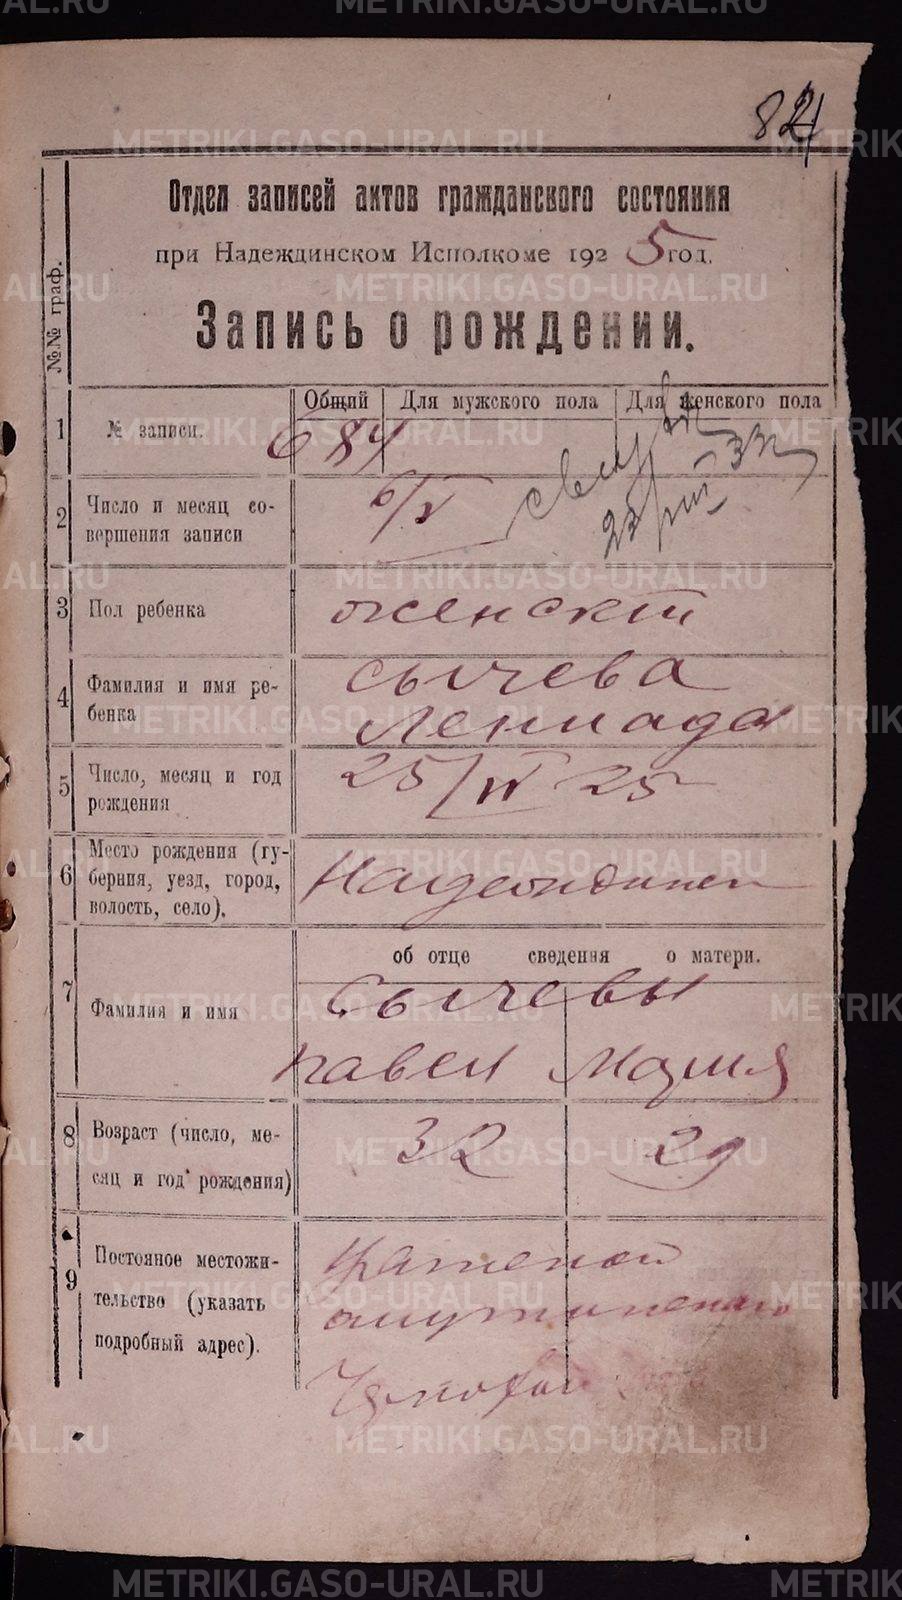 METRIKI.GASO-URAL.RU
824
Отдел записей актов гражданского состояния
при Надеждинском Исполкоме 1925 год.
Запись о рождении.
№№ граф.
Общий Для мужского пола Для женского пола
1 № записи. 684
2 Число и месяц со-
вершения записи 6/V
3 Пол ребенка женский
4 Фамилия и имя ре-
бенка
Сычева
Лениада
5 Число, месяц и год
рождения 25/IV 25
6 Место рождения (гу-
берния, уезд, город,
волость, село).
Надеждинск
об отце сведения о матери.
7 Фамилия и имя
Сычевы
Павел Мария
8 Возраст (число, ме-
сяц и год рождения)
32 29
9 Постоянное местожи-
тельство (указать
подробный адрес).